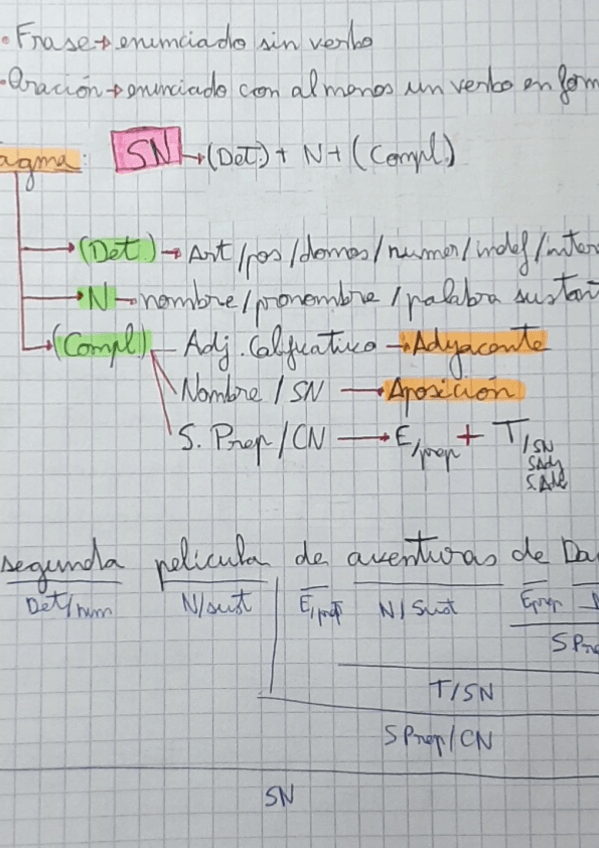 • Frase → enunciado sin verbo
• Oración → enunciado con al menos un verbo en form
agma: SN → (Det.) + N + (Compl.)
(Det.) → Art/pos/demos/numer/indef/inter
N → nombre/pronombre/palabra sustan
(Compl) — Adj. Calificativo → Adyacente
Nombre / SN → Aposición
S. Prep/CN → E/prep + T/SN
SAdj
S.Adv
segunda película de aventuras de Da
Det/num N/sust E/prep N/Sust E/prep
SPre
T/SN
SPrep/CN
SN